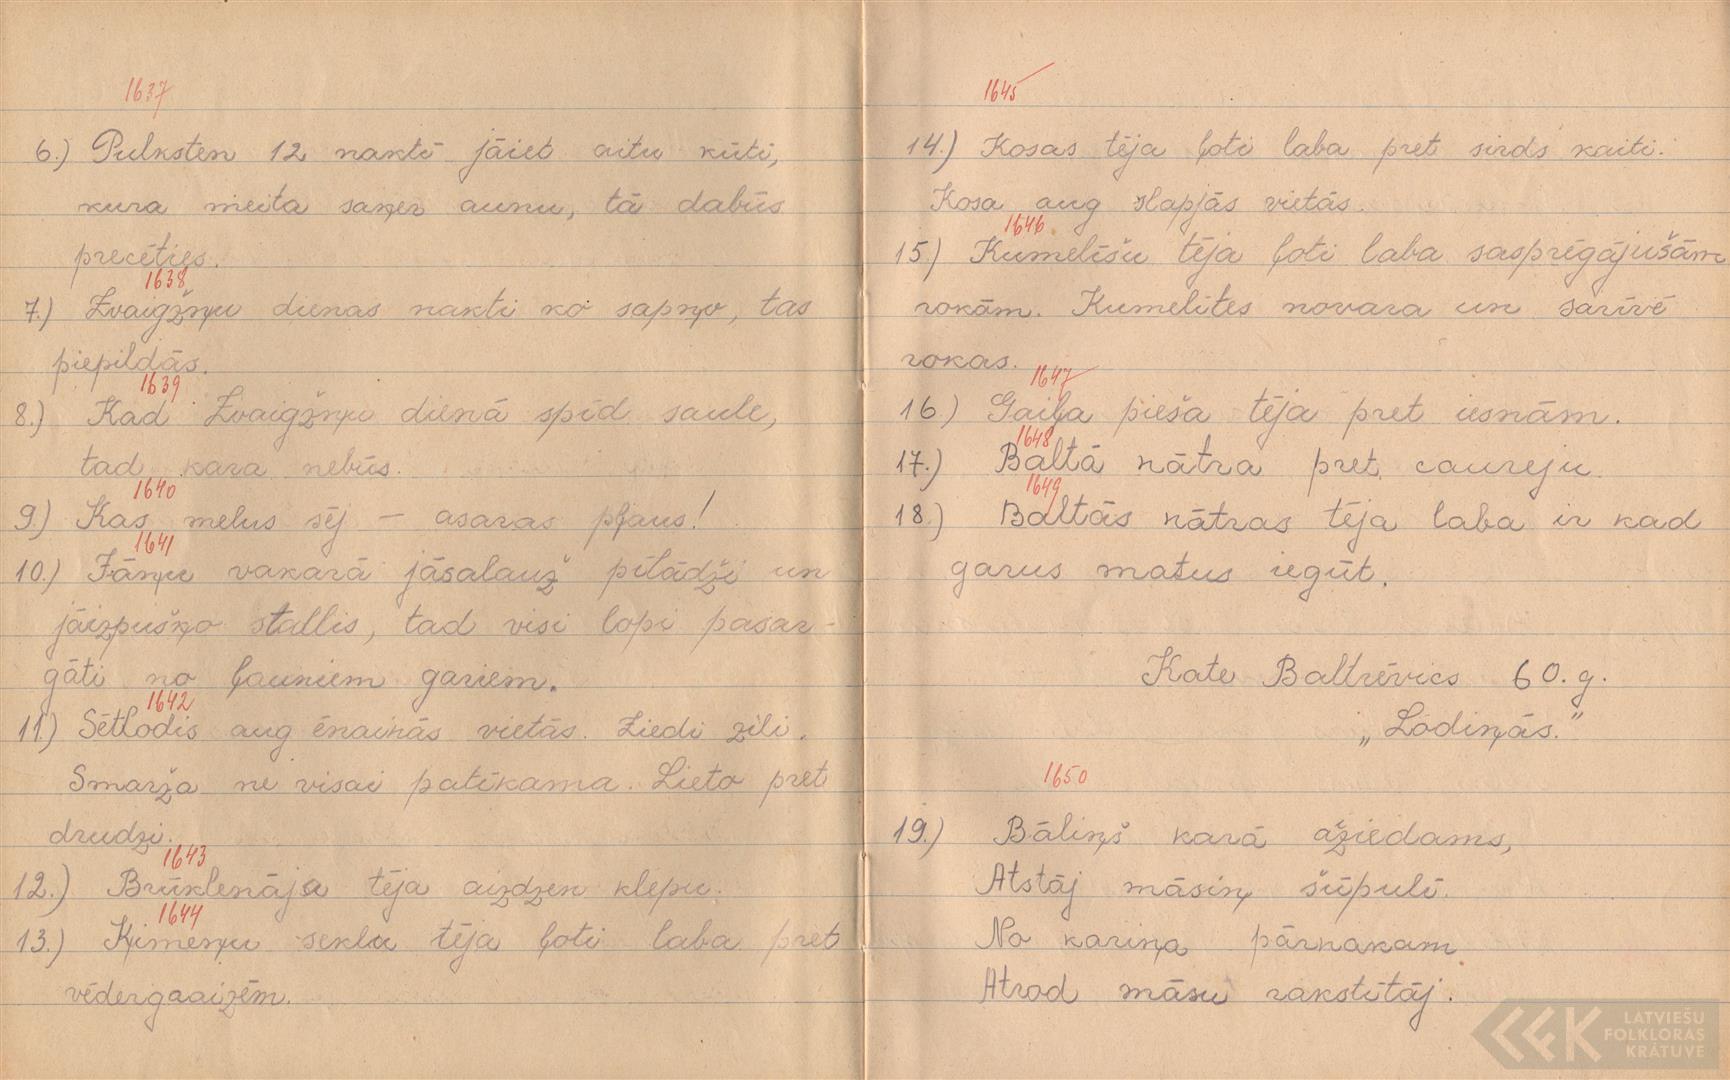 1637
6.) Pulksten 12 naktī jāiet aitu kūtī,
kura meita saķer aunu, tā dabūs
precēties.
1638
7.) Zvaigžņu dienas naktī ko sapņo, tas
piepildās.
1639
8.) Kad Zvaigžņu dienā spīd saule,
tad kara nebūs.
1640
9.) Kas melus sēj – asaras pļaus!
1641
10.) Jāņu vakarā jāsalauž pīlādži un
jāizpušķo stallis, tad visi lopi pasar-
gāti no ļauniem gariem.
1642
11.) Sētlodis aug ēnainās vietās. Ziedi zili.
Smarža ne visai patīkama. Lieto pret
drudzi.
1643
12.) Brūklenāja tēja aizdzen klepu.
1644
13.) Ķimeņu sekla tēja ļoti laba pret
vēdergraizēm.
1645
14.) Kosas tēja ļoti laba pret sirds kaiti.
Kosa aug slapjās vietās.
1646
15.) Kumelīšu tēja ļoti laba sasprēgājušām
rokām. Kumelītes novara un sarīvē
rokas.
1647
16.) Gaiļa pieša tēja pret iesnām.
1648
17.) Baltā nātra pret caureju.
1649
18.) Baltās nātras tēja laba ir kad
garus matus iegūt.
Kate Baltrēvics 60. g.
„Lodiņās."
1650
19.) Bāliņš karā aižiedams,
Atstāj māsiņ šūpulī.
No kariņa pārnakam
Atrod māsu rakstītāj.
LATVIEŠU
FOLKLORAS
KRĀTUVE